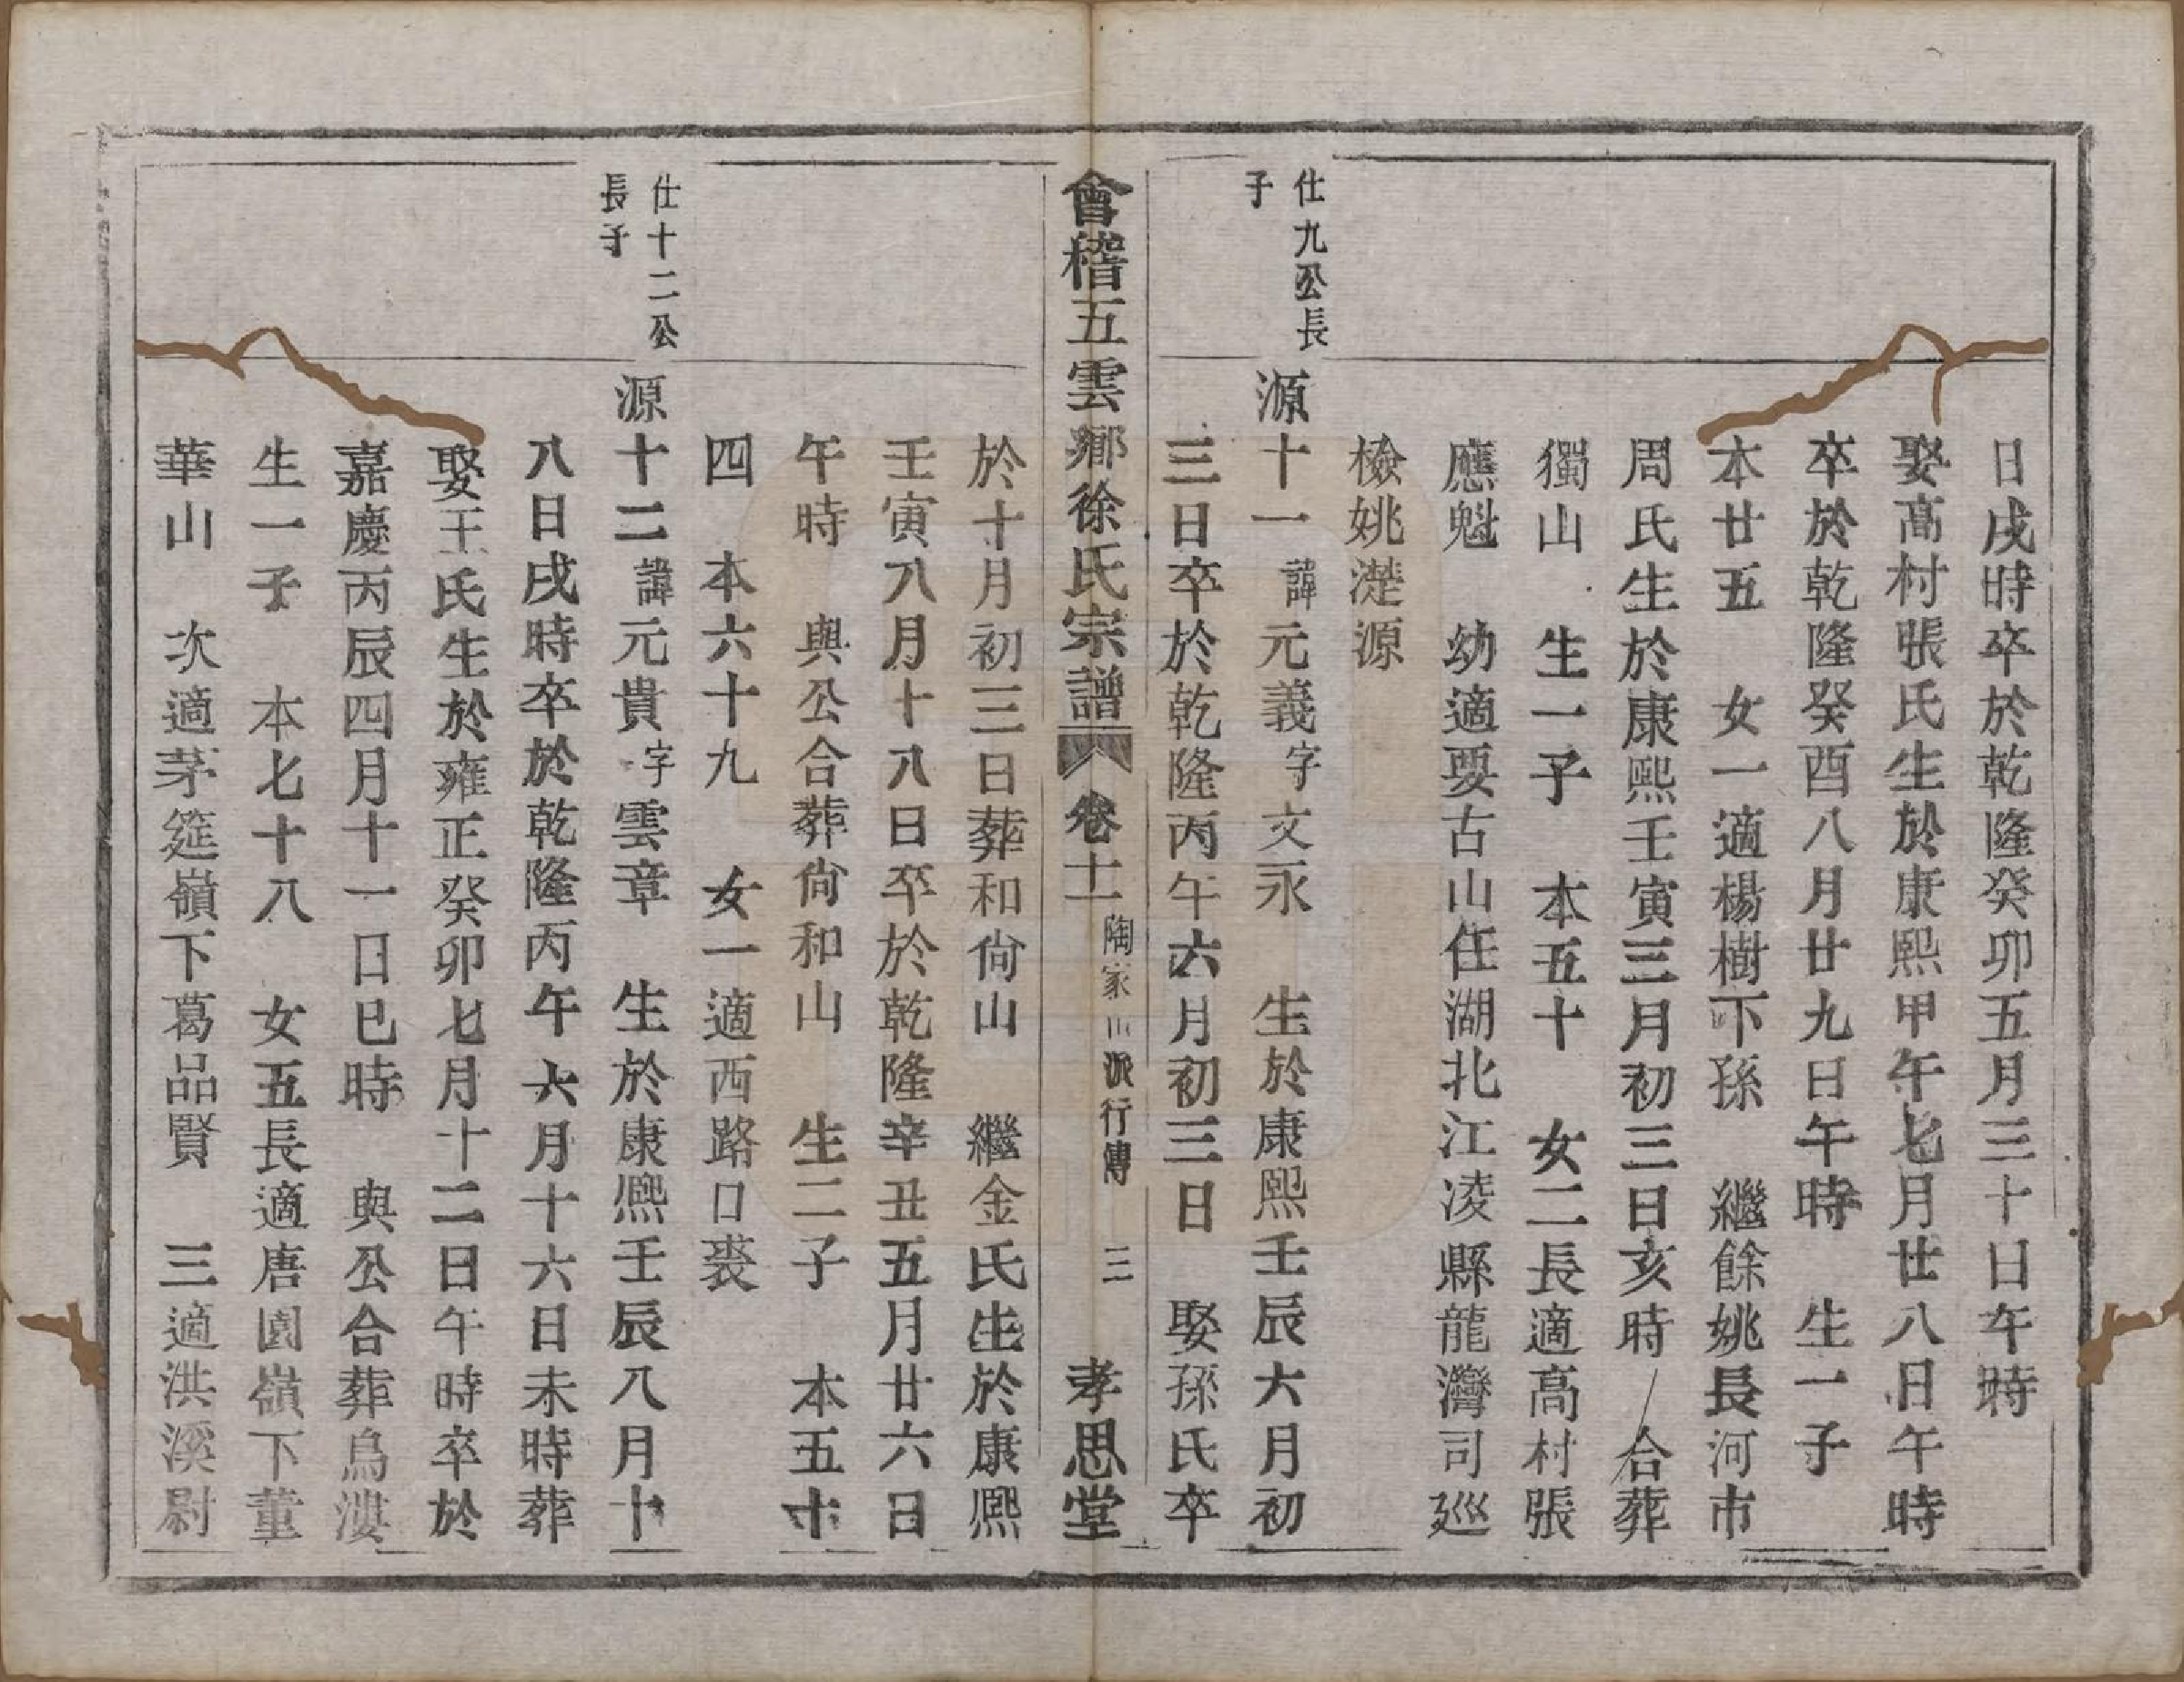 日戌時卒於乾隆癸卯五月三十日午時
娶高村張氏生於康熙甲午七月廿八日午時
卒於乾隆癸酉八月廿九日午時　生一子
本廿五　女一適楊樹下孫　繼餘姚長河市
周氏生於康熙壬寅三月初三日亥時　合葬
獨山　生一子　本五十　女二長適高村張
應魁　幼適要古山任湖北江凌縣龍灣司巡
檢姚濋源
仕九公長
子
源十一諱元義字文永　生於康熙壬辰六月初
三日卒於乾隆丙午六月初三日　娶孫氏卒
會稽五雲鄉徐氏宗譜　卷十一　陶家山派行傳　三　孝思堂
於十月初三日葬和尙山　繼金氏生於康熙
壬寅八月十八日卒於乾隆辛丑五月廿六日
午時　與公合葬尙和山　生二子　本五十
四　本六十九　女一適西路口裘
仕十二公
長子
源十二諱元貴字雲章　生於康熙壬辰八月十
八日戌時卒於乾隆丙午六月十六日未時葬
娶王氏生於雍正癸卯七月十二日午時卒於
嘉慶丙辰四月十一日巳時　與公合葬烏漊
生一子　本七十八　女五長適唐園嶺下董
華山　次適茅筳嶺下葛品賢　三適洪溪尉